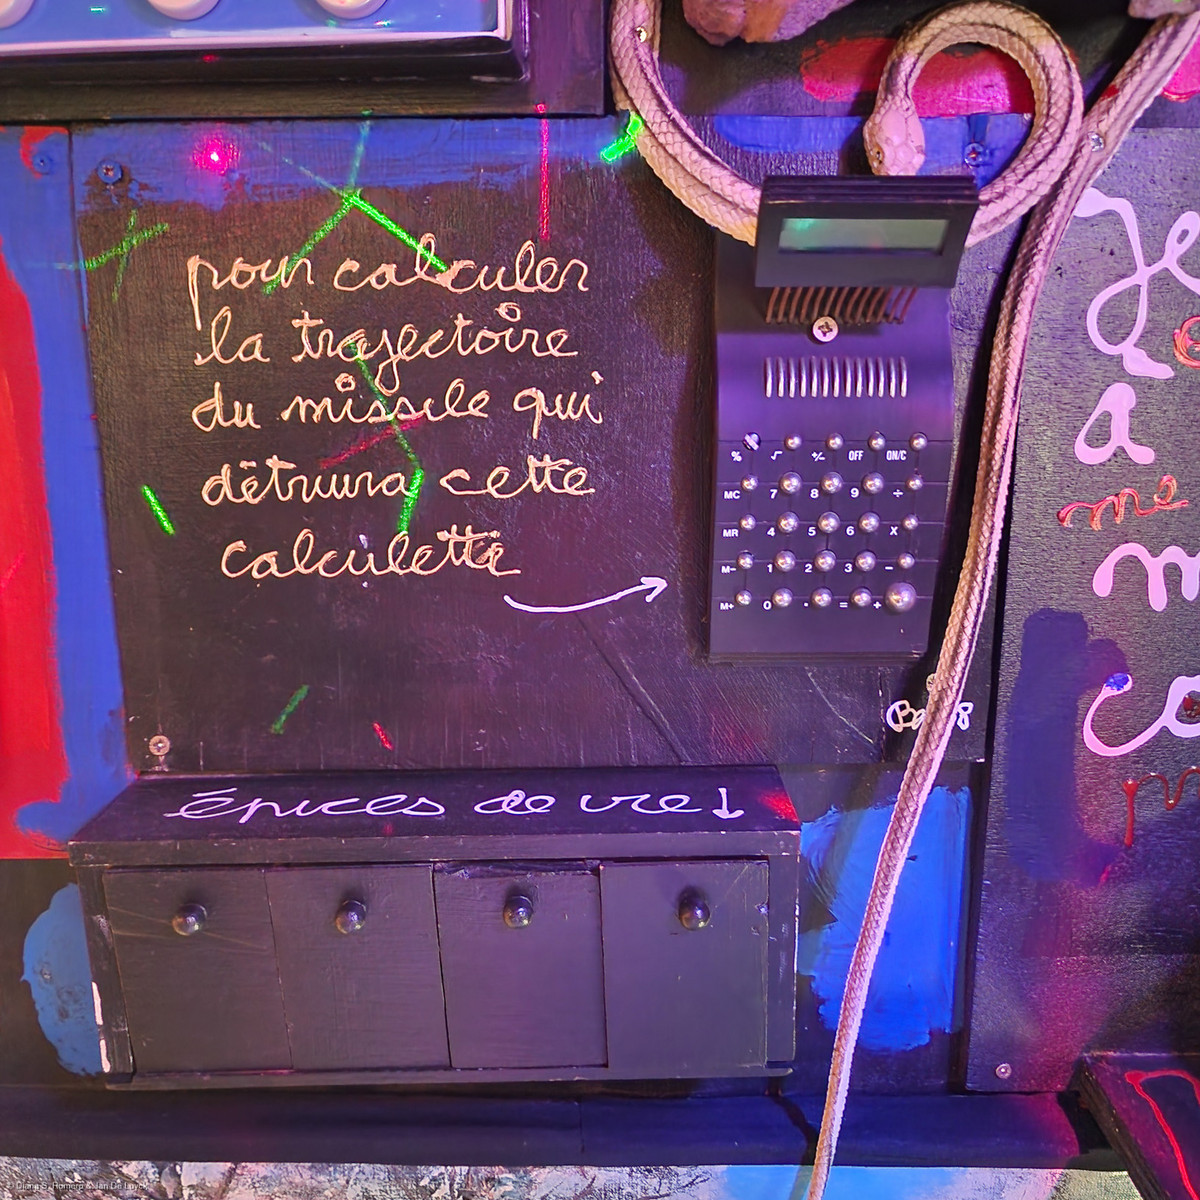 pour calculer
la trajectoire
du missile qui
détruira cette
calculette
% √ +/- OFF ON/C
MC 7 8 9 ÷
MR 4 5 6 X
M- 1 2 3 -
M+ 0 . = +
épices de vie ↓
Je
a
me
m
co
© Diana S. Homero & Jan De Luyck